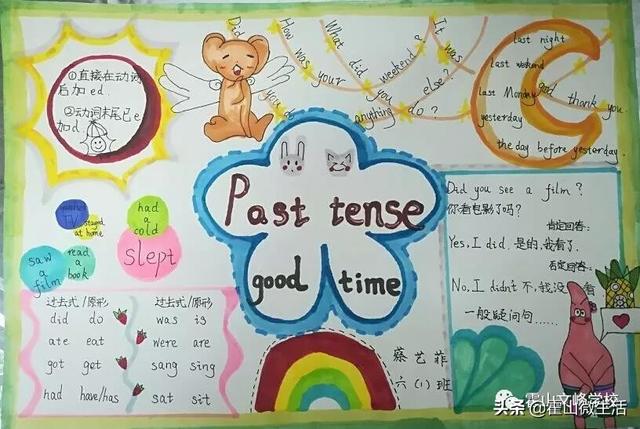 ①直接在动词
后加ed.
②动词末尾已e
加d.
Did you do anything else?
How was your weekend?
What did you do?
It was good, thank you.
last night
last weekend
last Monday
yesterday
the day before yesterday.
Past tense
good time
TV
stayed
at home
had
a
cold
slept
saw
a
film
read
a
book
过去式/原形
did do
ate eat
got get
had have/has
过去式/原形
was is
were are
sang sing
sat sit
Did you see a film?
你看电影了吗?
肯定回答:
Yes, I did. 是的,我看了.
否定回答:
No, I didn't 不,我没看
一般疑问句……
蔡艺菲
六(1)班
霍山文峰学校
头条@霍山微生活